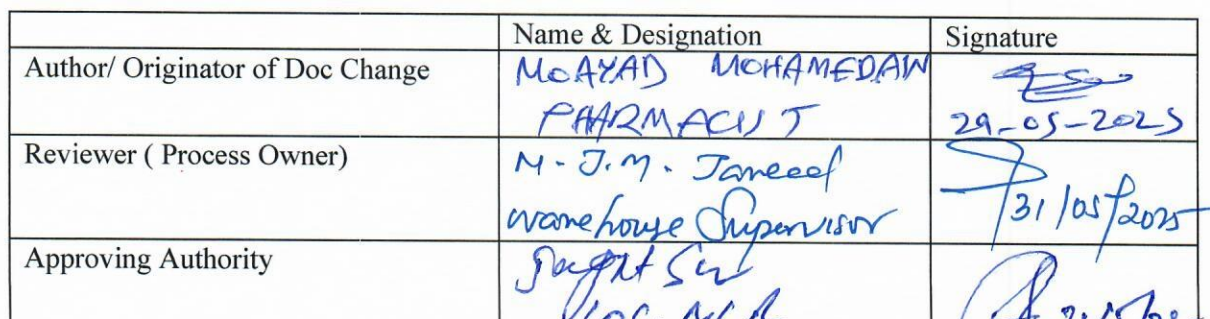 Name & Designation Signature
Author/ Originator of Doc Change MOAYAD MOHAMEDAIN
PHARMACIST 29-05-2025
Reviewer ( Process Owner) M. J. M. Jameel
warehouse Supervisor 31/05/2025
Approving Authority